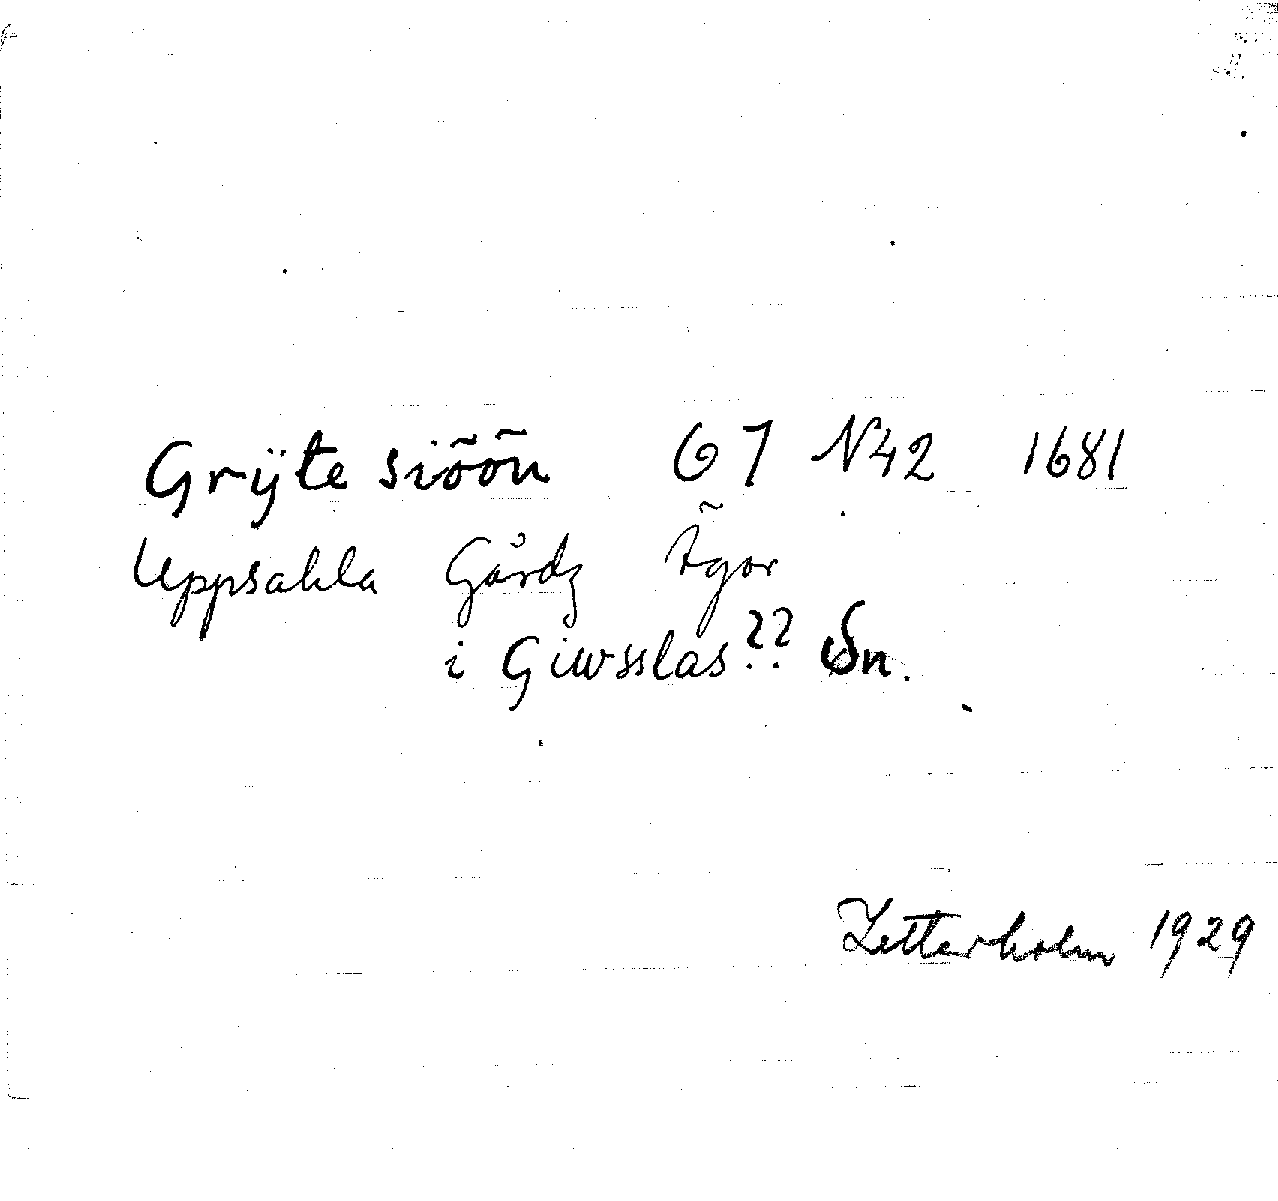 Grÿte siõõn G7 N42 1681
Uppsahla Gårdz Ägor
i Giwsslas?? Sn.
Zetterholm 1929